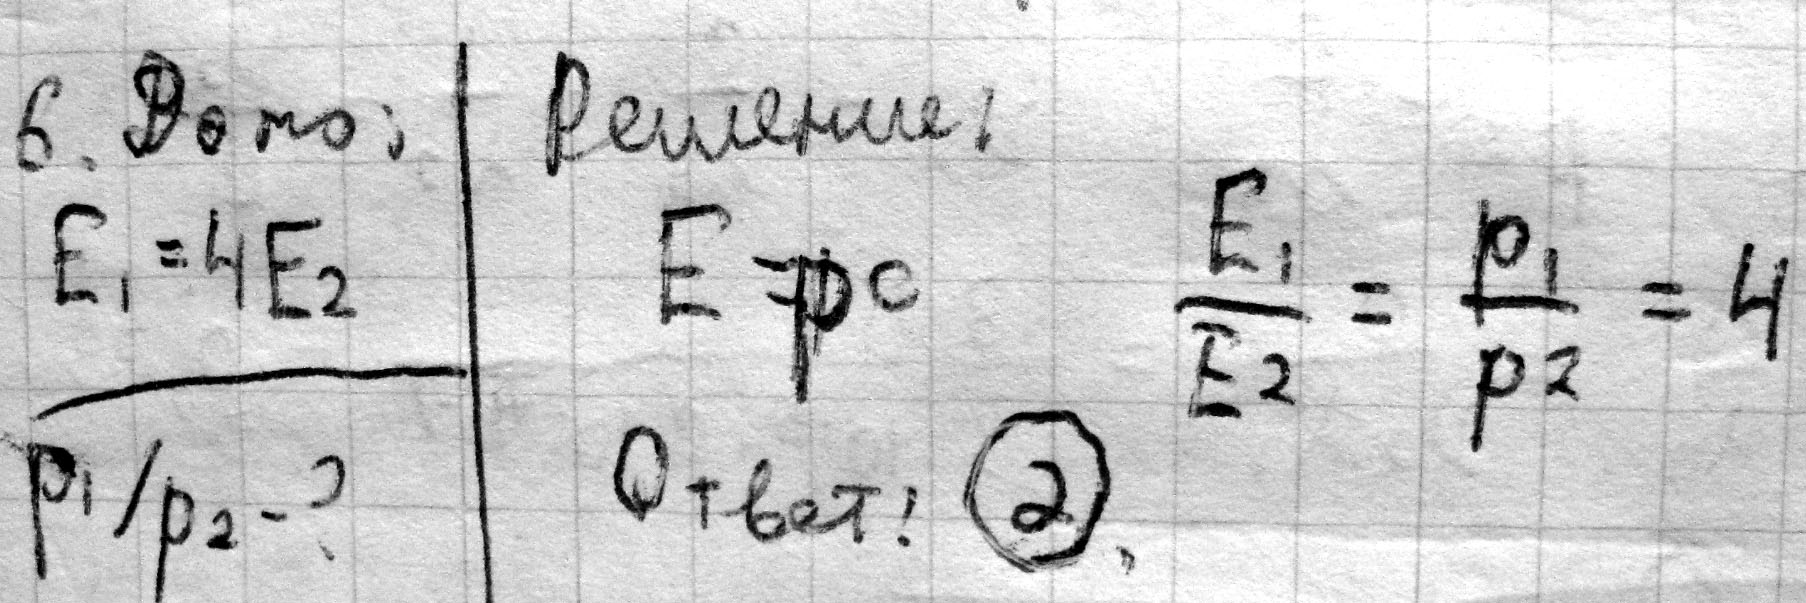 6. Дано:
E₁ = 4E₂
p₁/p₂ - ?
Решение:
E = pc
E₁/E₂ = p₁/p₂ = 4
Ответ: 2.